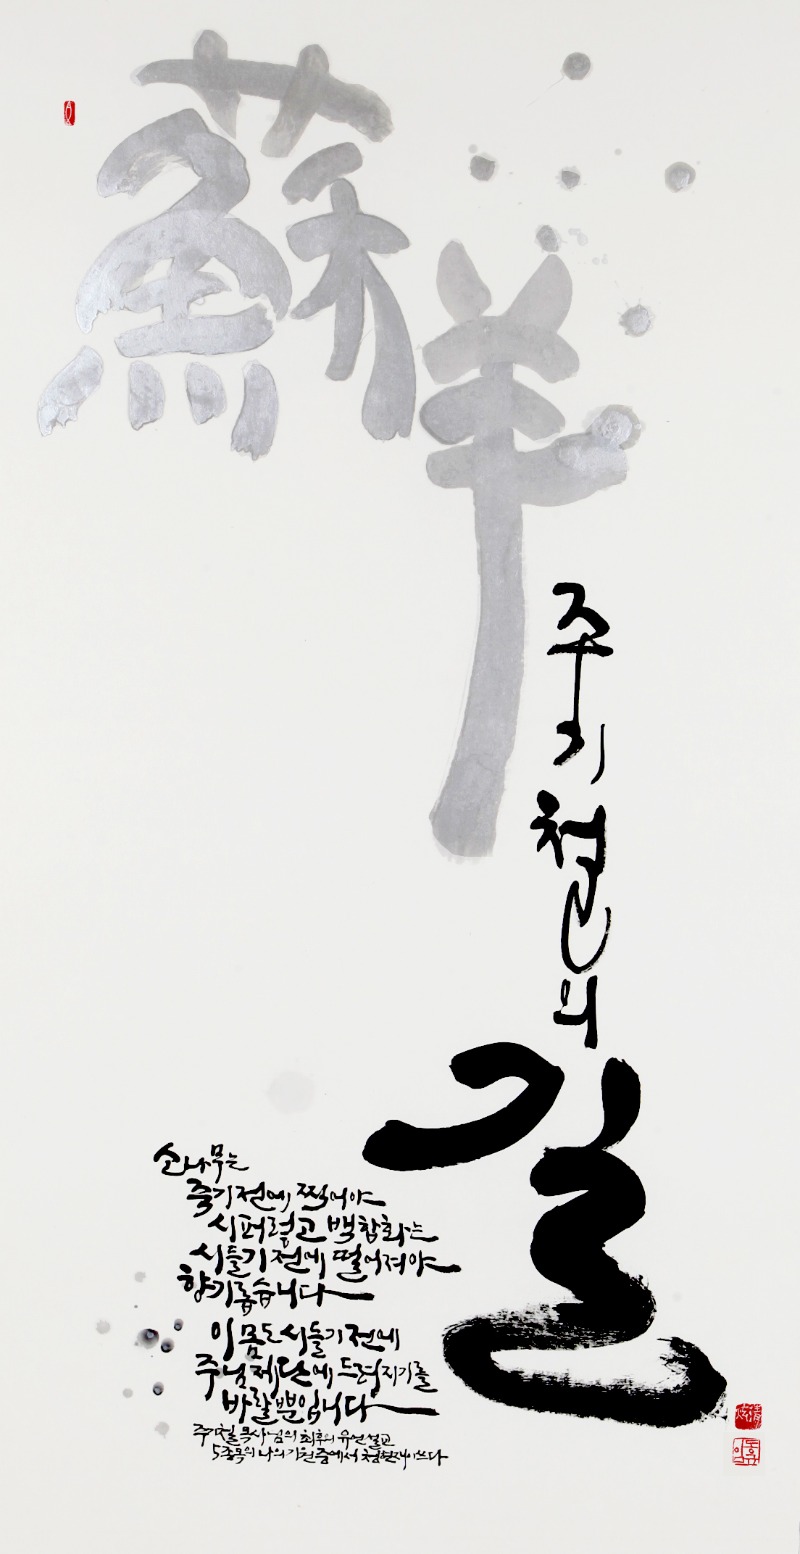 蘇羊
주기철의
길
소나무는
죽기 전에 찍어야
시퍼렇고 백합화는
시들기 전에 떨어져야
향기롭습니다
이 몸도 시들기 전에
주님 제단에 드려지기를
바랄 뿐입니다
주기철 목사님의 최후의 유언설교
5종목의 나의 기원 중에서 청현재이 쓰다